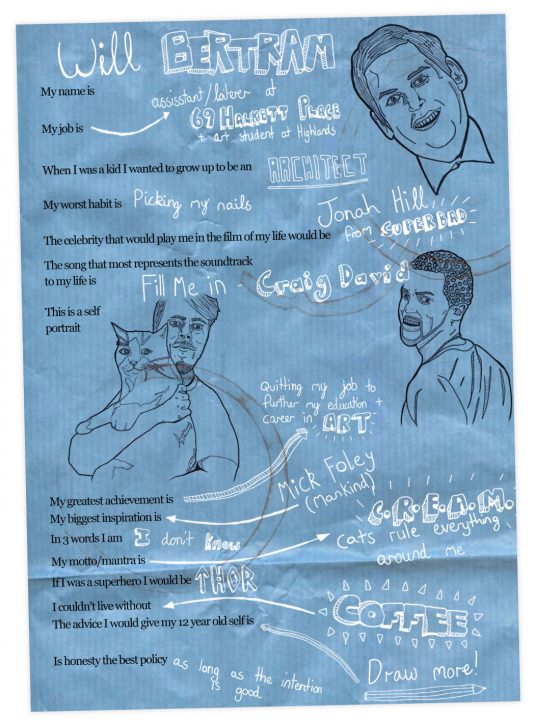 Will BERTRAM
My name is
assisstant/laterer at
69 HALKETT PLACE
+ art student at Highlands
My job is
When I was a kid I wanted to grow up to be an ARCHITECT
My worst habit is Picking my nails
Jonah Hill
from SUPERBAD
The celebrity that would play me in the film of my life would be
The song that most represents the soundtrack
to my life is Fill Me in - Craig David
This is a self
portrait
Quitting my job to
further my education +
career in ART
My greatest achievement is
Mick Foley
(Mankind)
My biggest inspiration is
In 3 words I am I don't know
C.R.E.A.M.
cats rule everything
around me
My motto/mantra is
If I was a superhero I would be THOR
I couldn't live without
COFFEE
The advice I would give my 12 year old self is
Draw more!
Is honesty the best policy as long as the intention
is good